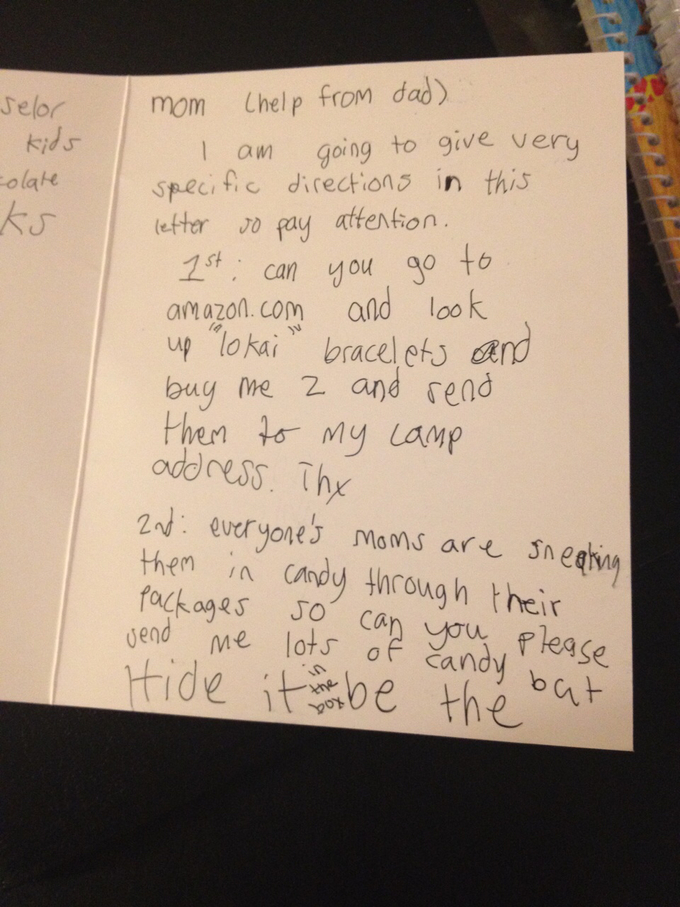 selor
kids
colate
ks
mom (help from dad)
I am going to give very
specific directions in this
letter so pay attention.
1st: can you go to
amazon.com and look
up "lokai" bracelets and
buy me 2 and send
them to my camp
address. Thx
2nd: everyone's moms are sneaking
them in candy through their
packages so can you please
send me lots of candy but
Hide it in the box be the